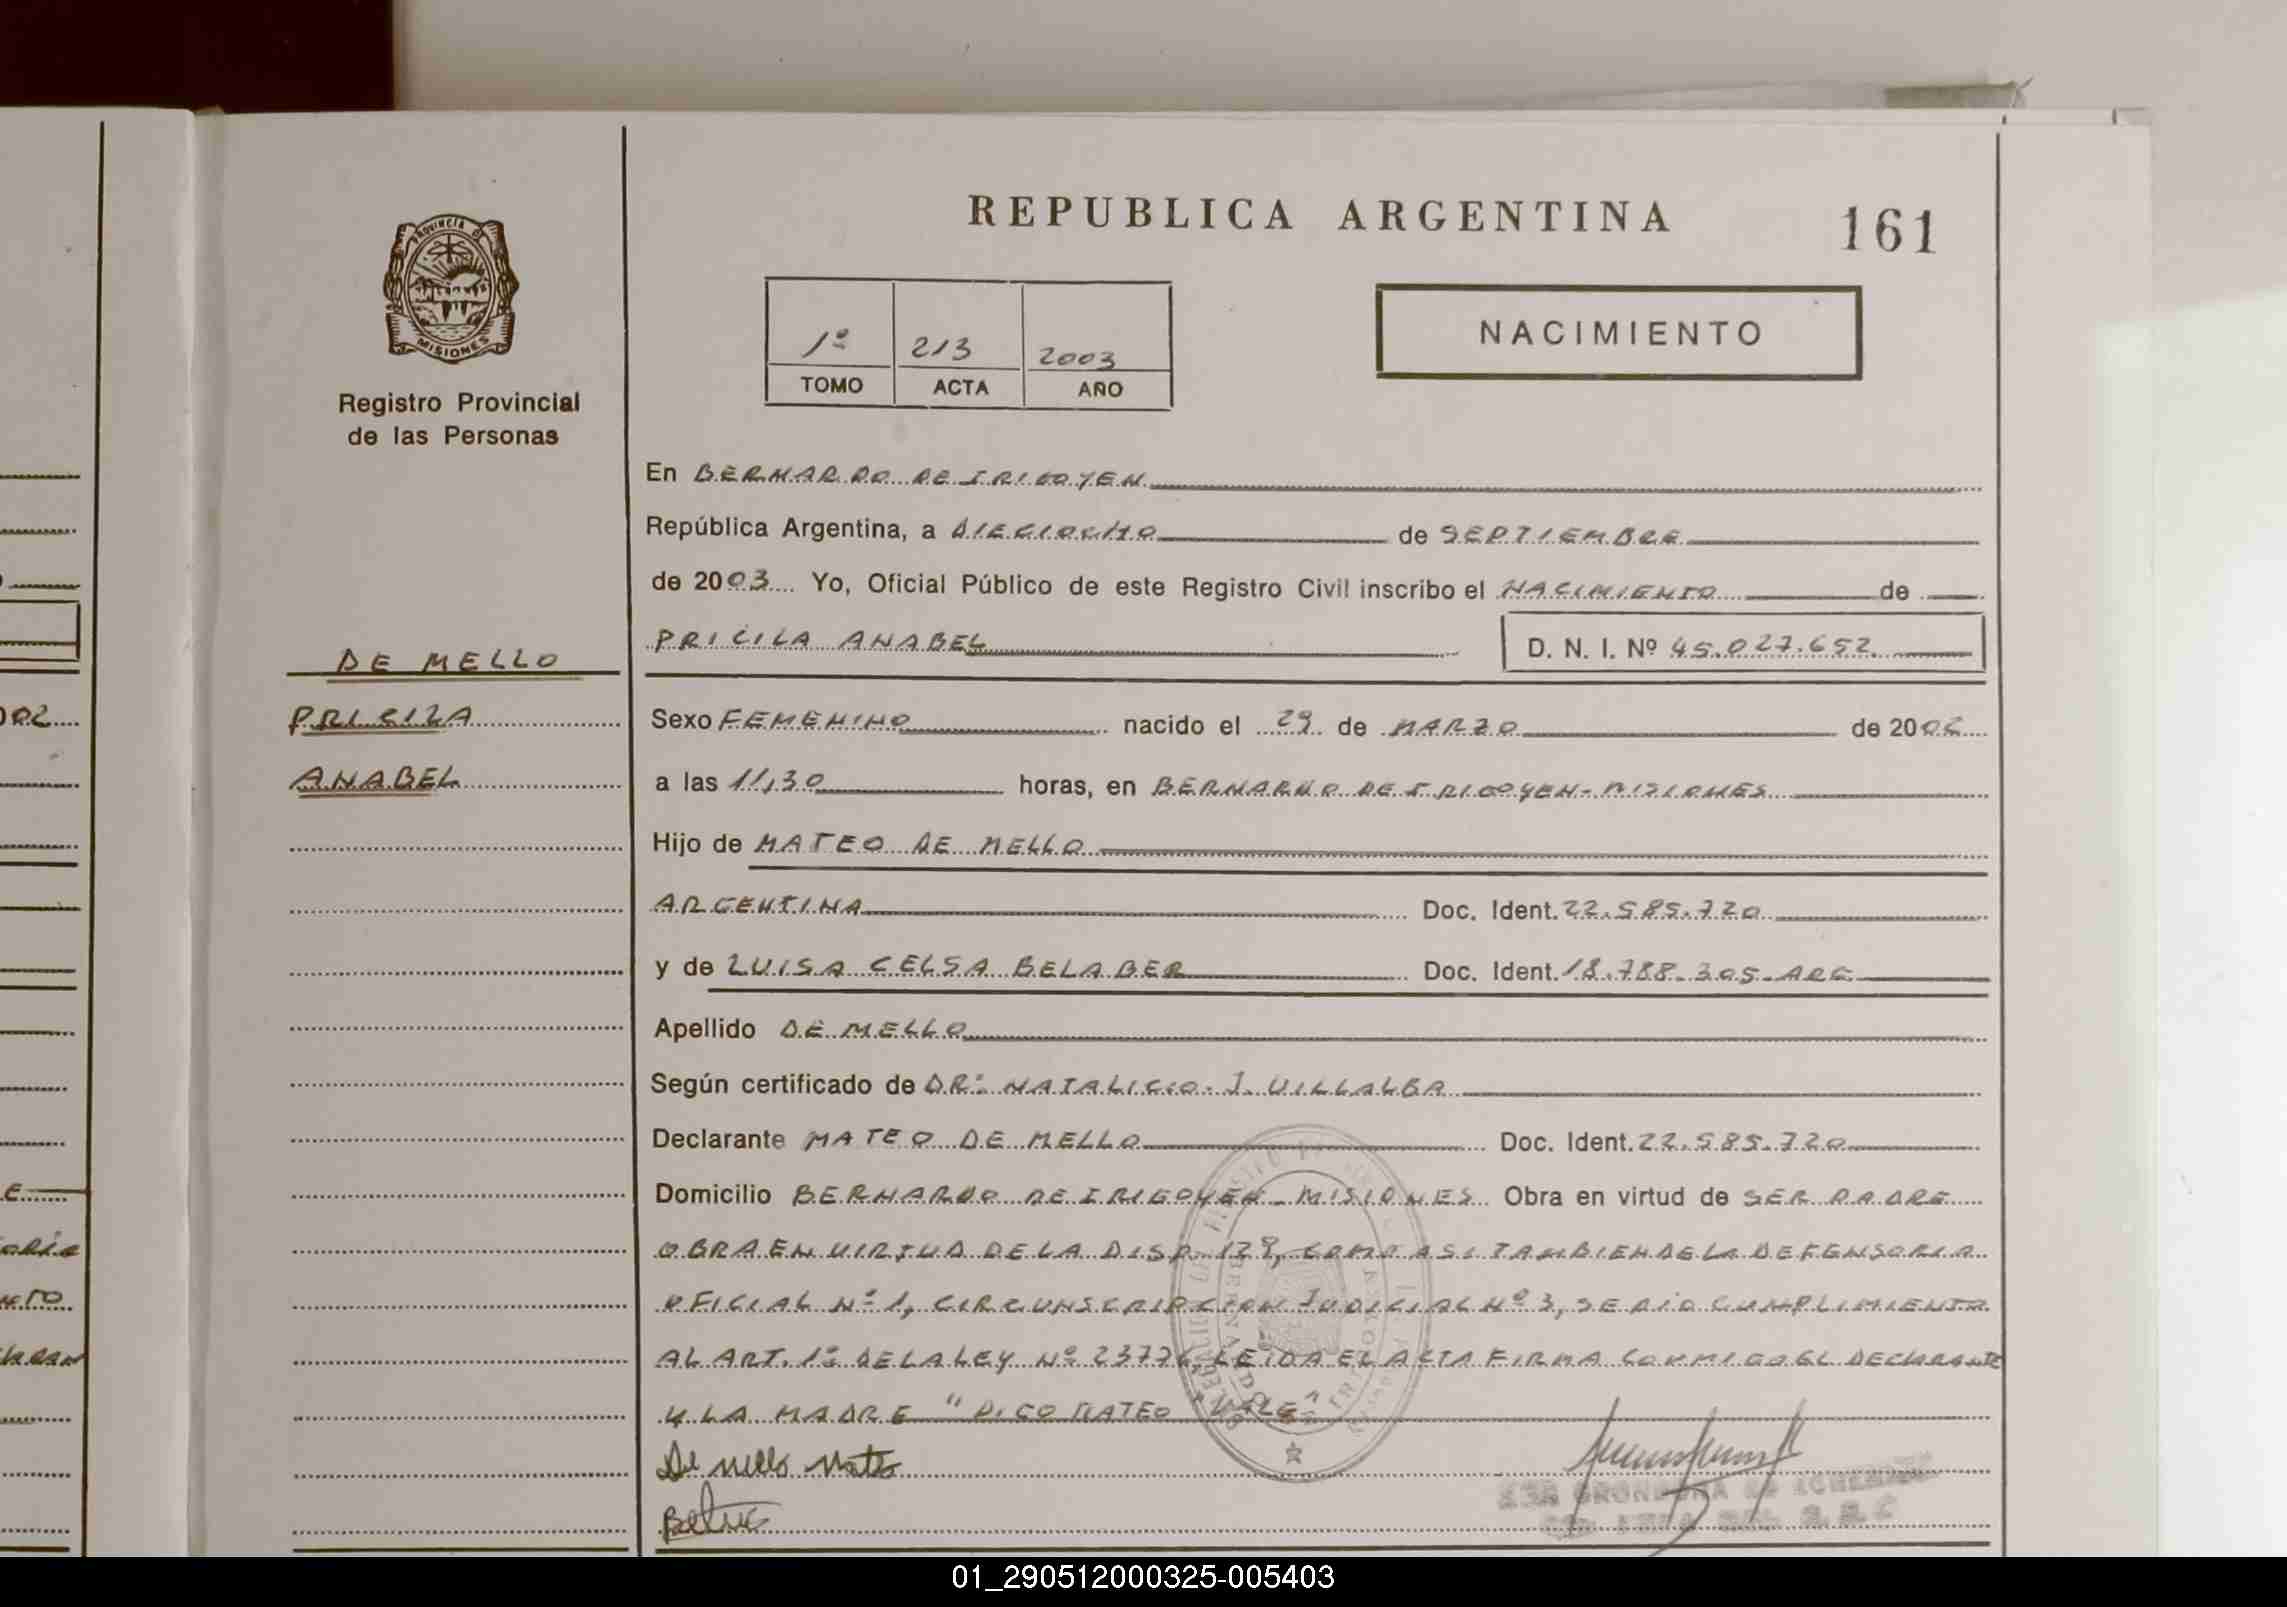 REPUBLICA ARGENTINA
161
PROVINCIA DE
MISIONES
Registro Provincial
de las Personas
1º 213 2003
TOMO ACTA AÑO
NACIMIENTO
En BERNARDO DE IRIGOYEN
República Argentina, a DIECIOCHO de SEPTIEMBRE
de 2003 Yo, Oficial Público de este Registro Civil inscribo el NACIMIENTO de
PRICILA ANABEL D. N. I. Nº 45.027.652
DE MELLO
PRICILA
ANABEL
Sexo FEMENINO nacido el 29 de MARZO de 2002
a las 11,30 horas, en BERNARDO DE IRIGOYEN-MISIONES
Hijo de MATEO DE MELLO
ARGENTINA Doc. Ident. 22.585.720
y de LUISA CELSA BELABER Doc. Ident. 18.788.305-ARG
Apellido DE MELLO
Según certificado de DR: NATALICIO J. VILLALBA
Declarante MATEO DE MELLO Doc. Ident. 22.585.720
Domicilio BERNARDO DE IRIGOYEN-MISIONES Obra en virtud de SER PADRE
OBRA EN VIRTUD DE LA DISP. 129, COMO ASI TAMBIEN DE LA DEFENSORIA
OFICIAL Nº 1, CIRCUNSCRIPCION JUDICIAL Nº 3, SE DIO CUMPLIMIENTO
AL ART. 1º DE LA LEY Nº 23776, LEIDA EL ACTA FIRMA CONMIGO EL DECLARANTE
Y LA MADRE "DIGO MATEO "VALE"
De mello Mateo
002
01_290512000325-005403